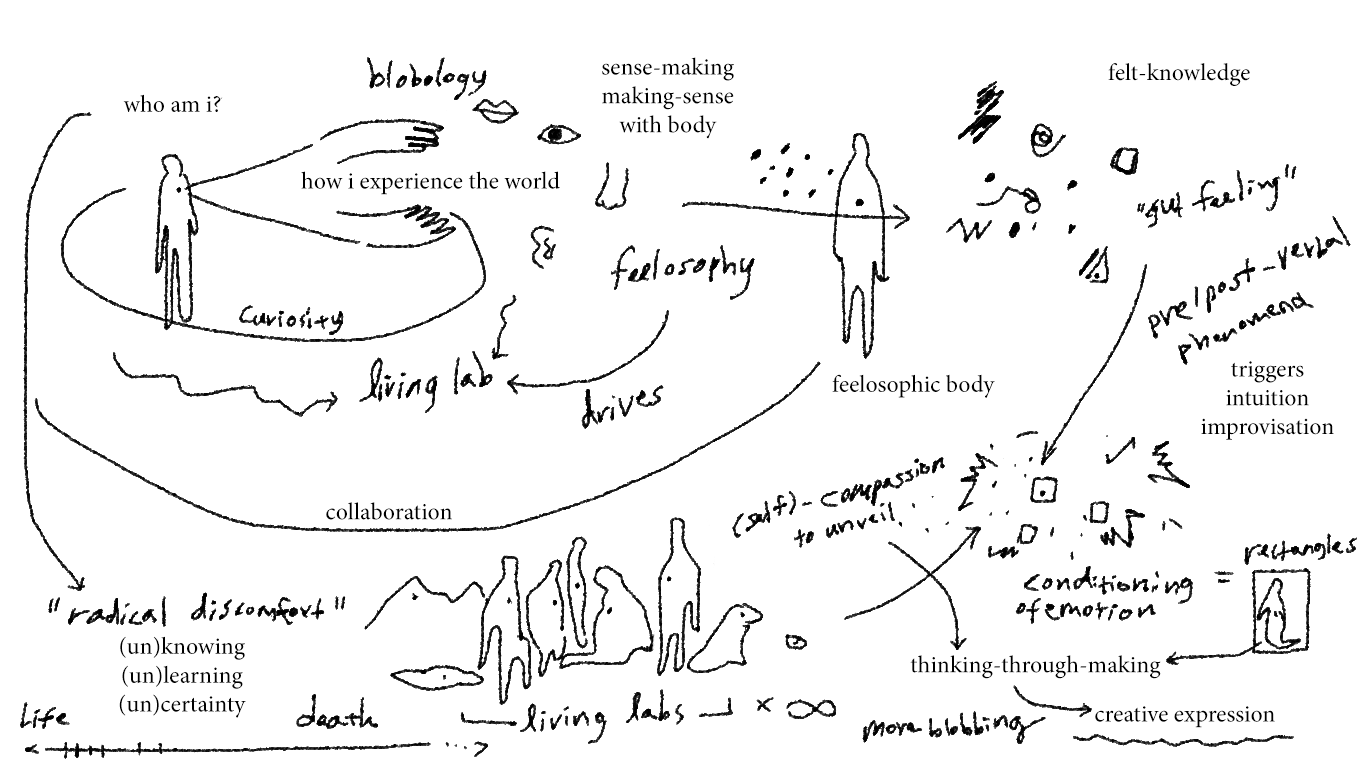 blobology
who am i?
sense-making
making-sense
with body
felt-knowledge
how i experience the world
"gut feeling"
feelosophy
curiosity
pre/post-verbal
phenomena
living lab
drives
feelosophic body
triggers
intuition
improvisation
(self)-compassion
to unveil
collaboration
rectangles
conditioning =
of emotion
"radical discomfort"
(un)knowing
(un)learning
(un)certainty
thinking-through-making
Life
death
living labs × ∞
more blobbing
creative expression